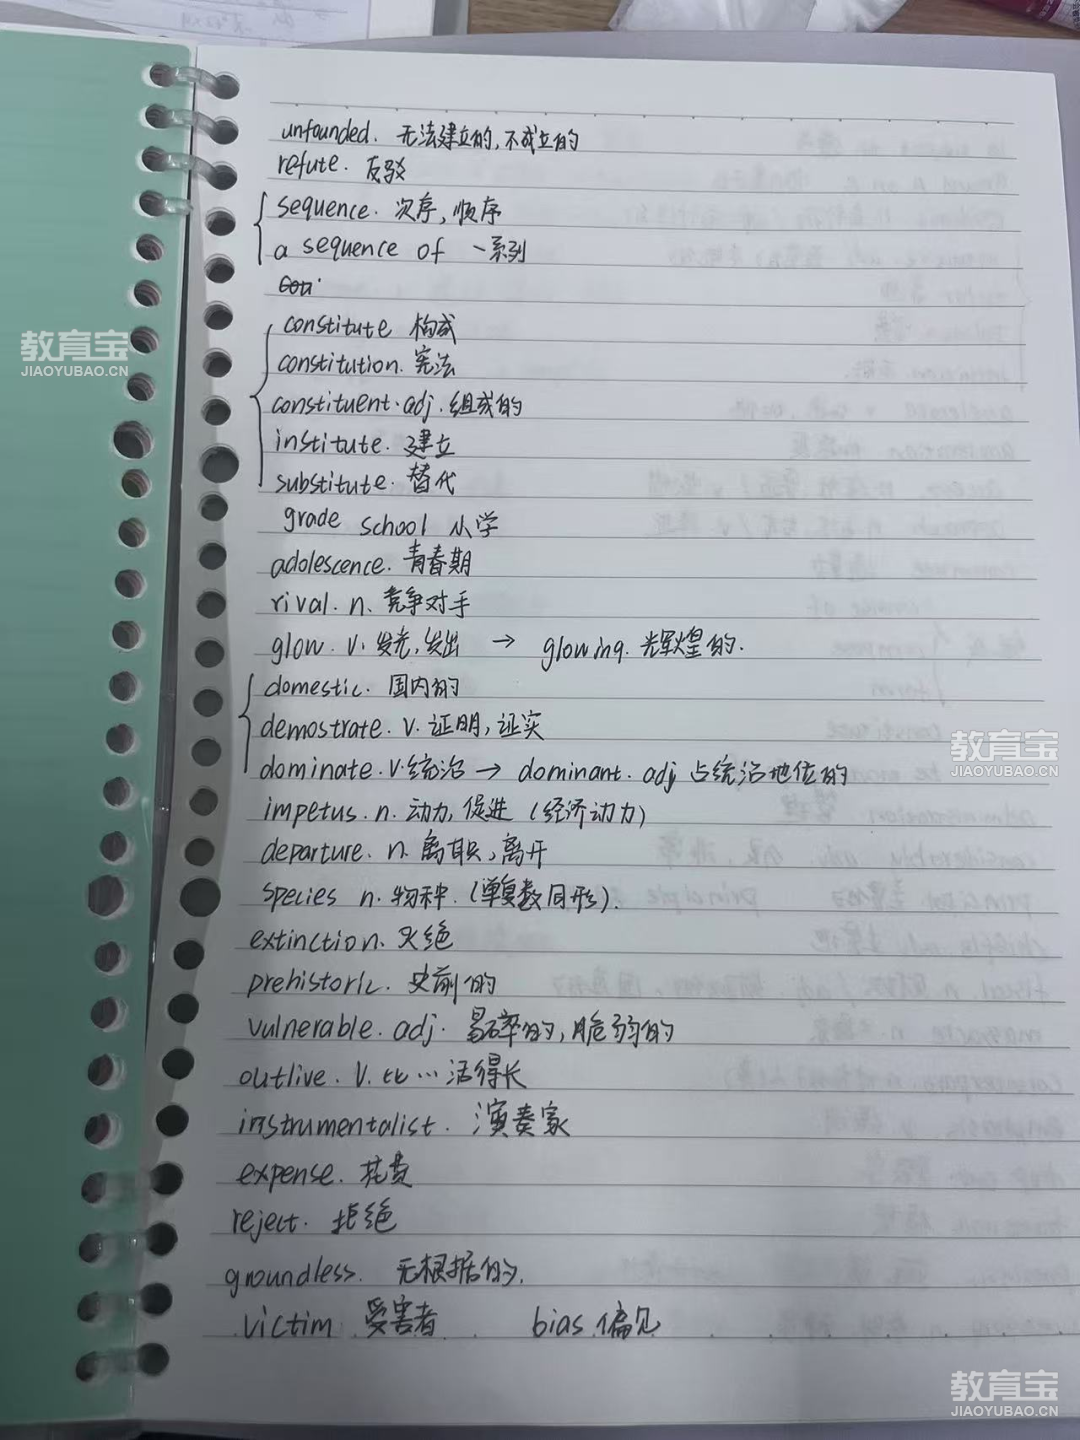 unfounded. 无法建立的,不成立的
refute. 反驳
sequence. 次序,顺序
a sequence of 一系列
constitute 构成
constitution. 宪法
constituent. adj. 组成的
institute. 建立
substitute. 替代
grade school 小学
adolescence. 青春期
rival. n. 竞争对手
glow. v. 发光,发出 → glowing. 辉煌的.
domestic. 国内的
demostrate. v. 证明,证实
dominate. v. 统治 → dominant. adj 占统治地位的
impetus. n. 动力,促进 (经济动力)
departure. n. 离职,离开
species n. 物种. (单复数同形).
extinction n. 灭绝
prehistoric. 史前的
vulnerable. adj. 易碎的,脆弱的
outlive. v. 比…活得长
instrumentalist. 演奏家
expense. 花费
reject. 拒绝
groundless. 无根据的.
victim 受害者 bias 偏见
教育宝
JIAOYUBAO.CN
教育宝
JIAOYUBAO.CN
教育宝
JIAOYUBAO.CN